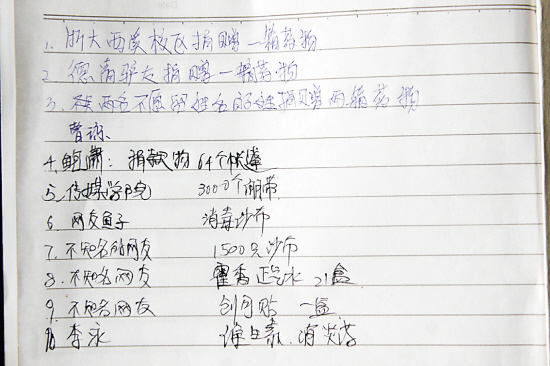 1. 浙大西溪校区捐赠一箱药物
2. 德清驴友捐赠一箱药物
3. 两名不愿留姓名的捐赠两箱药物
4. 鲍潇: 捐款物 64个帐篷
5. 传媒学院 3000个绷带
6. 网友鱼子 消毒沙布
7. 不知名的网友 1500只沙布
8. 不知名网友 霍香正气水 21盒
9. 不知名网友 创可贴 一盒
10. 李永 维生素. 消炎药